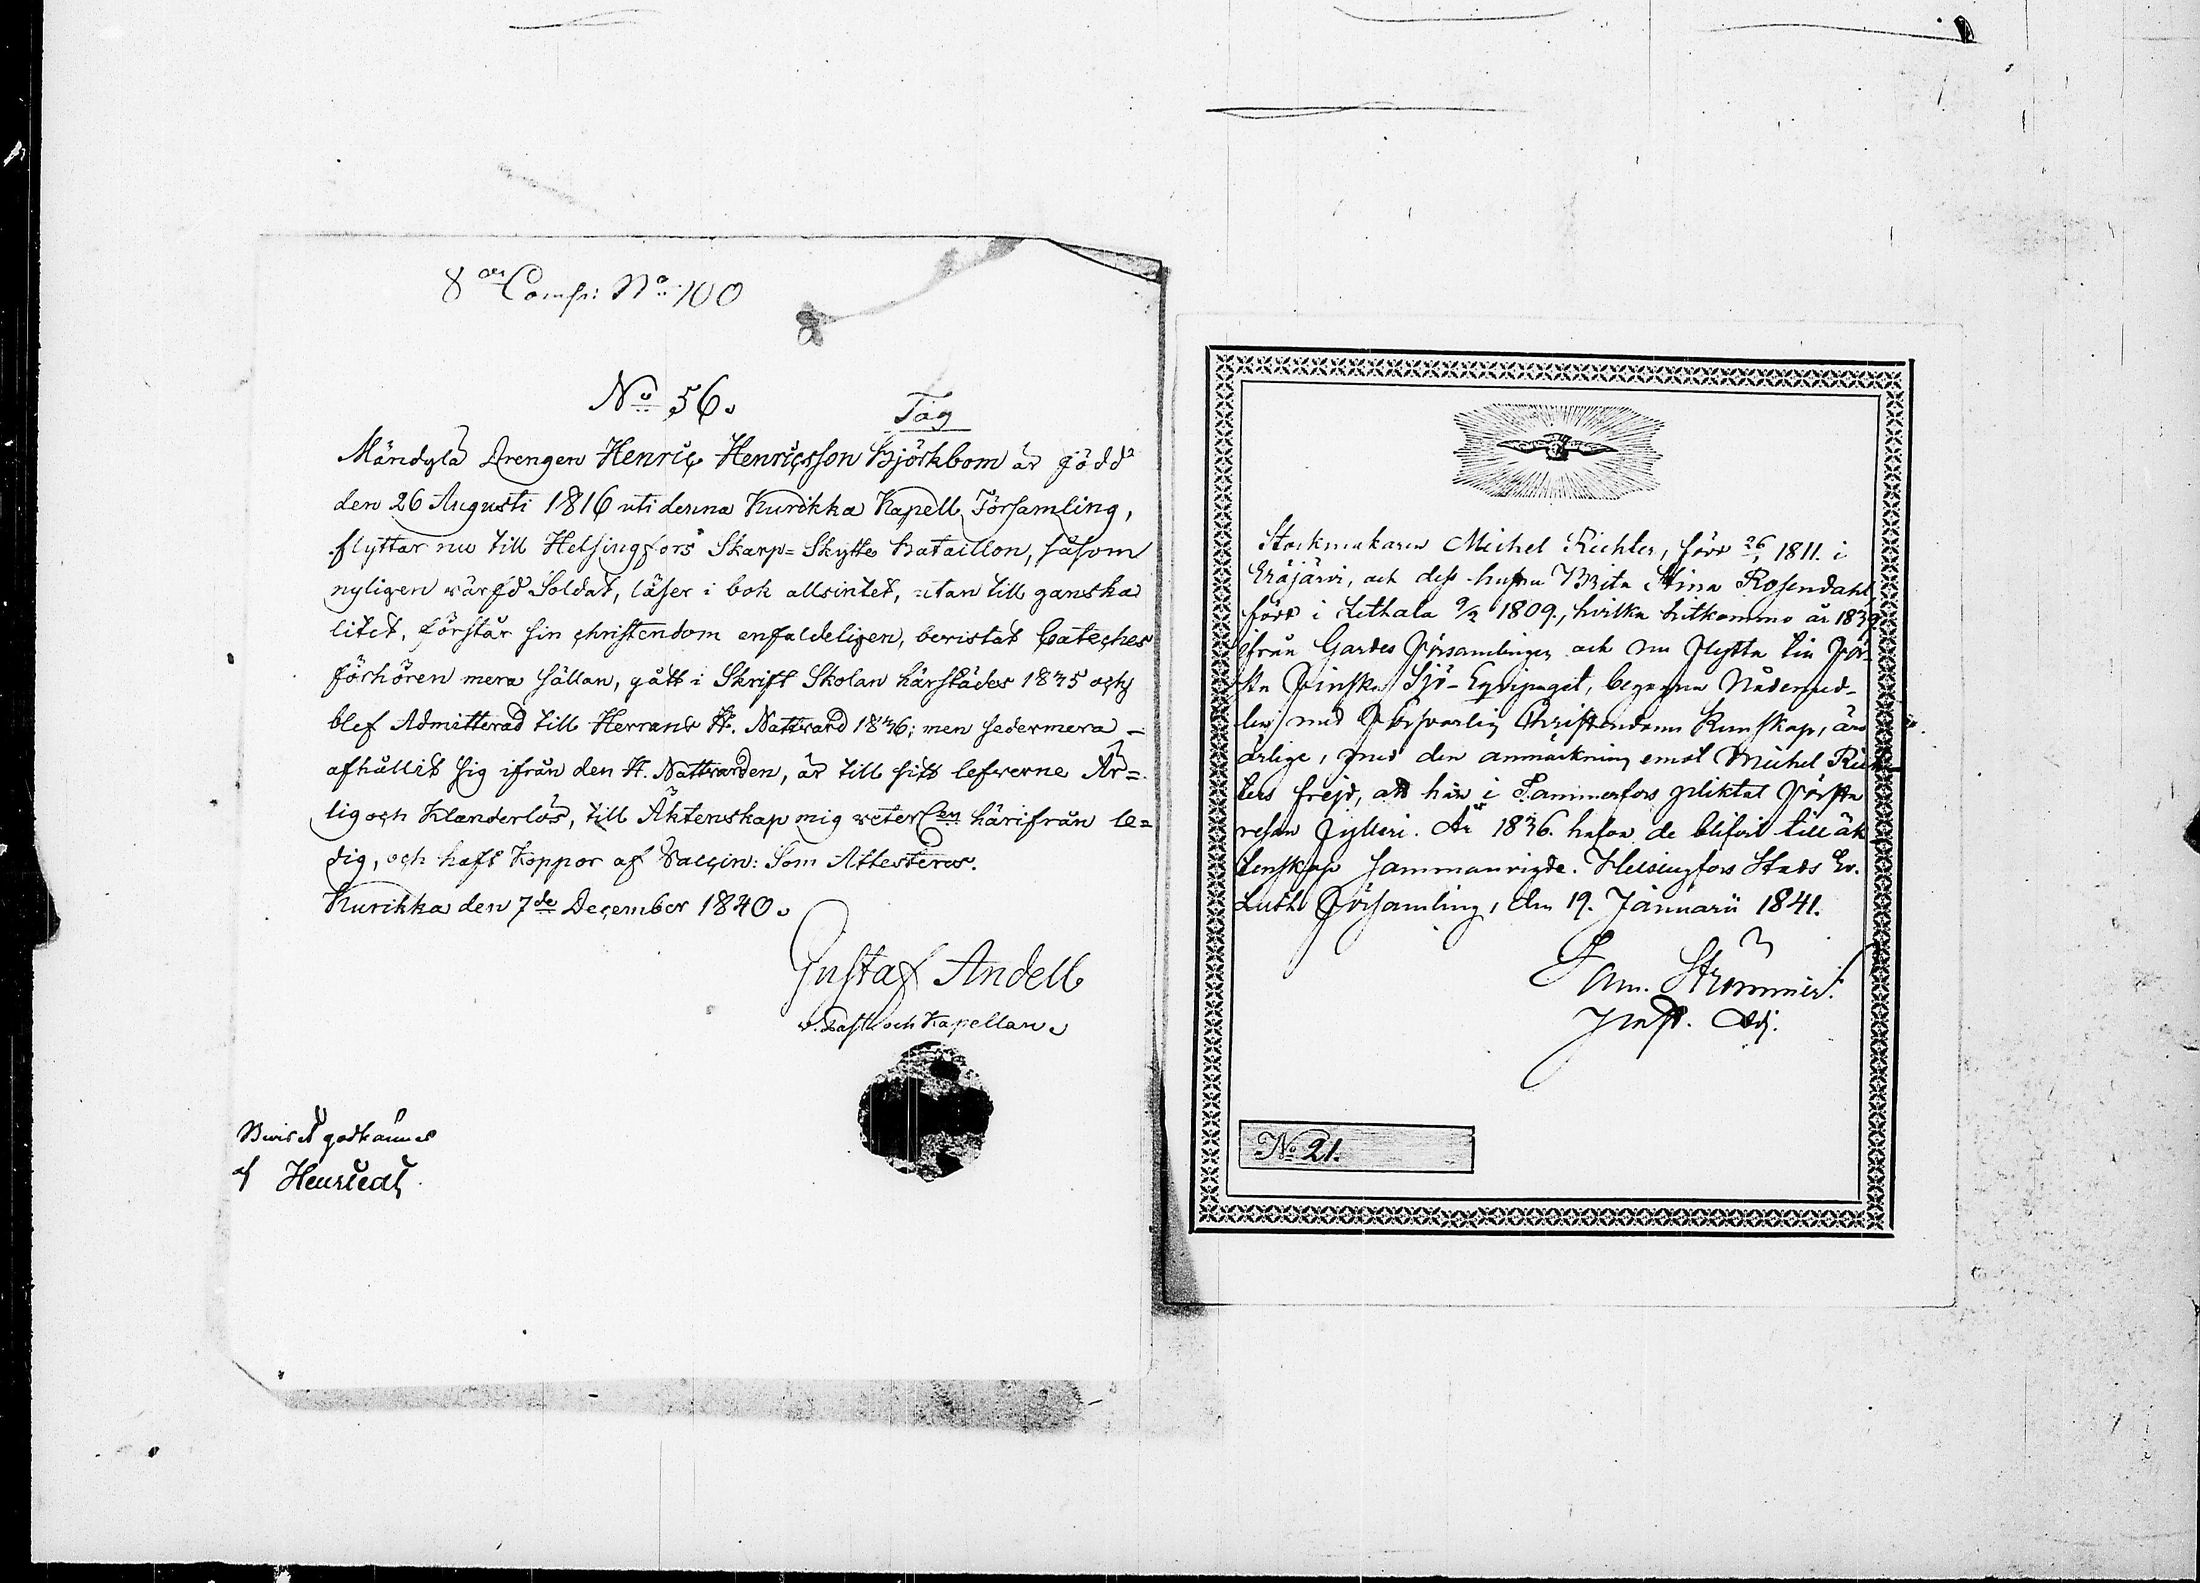 8de Comp: No 100
No 56.
Täg
Myndga Drengen Henric Henricsson Björkbom är född
den 26 Augusti 1816 uti denna Kurikka Kapell Församling,
flyttar nu till Helsingfors Skarp= Skytte Bataillon, såsom
nyligen värfd Soldat, läser i bok allsintet, utan till ganska
litet, förstår sin christendom enfaldeligen, bevistat Cateches
förhören mera sällan, gått i Skrift Skolan härstädes 1835 och
blef Admitterad till Herrans H. Nattvard 1836; men sedermera
afhållit sig ifrån den H. Nattvarden, är till sitt lefverne Är=
lig och Klanderlös, till Äktenskap mig veterl.en härifrån le=
dig, och haft Koppor af Vaccin: Som Attesteras.
Kurikka den 7de December 1840.
Gustaf Andell
v. Past. och Kapellan.
Beviset godkännes
af Henstedt
Stockmakaren Michel Richter, född 26 1811. i
Eräjärvi, och dess hustru Brita Stina Rosendahl
född i Lethala 9/2 1809., hvilka hitkommo år 1839
ifrån Gardes Församlingen och nu flytta till För-
sta Finska Sjö-Equipaget, begagna Nådemed-
len med försvarlig Christendoms Kunskap, äro
ärlige, med den anmärkning emot Michel Rich-
ters frejd, att han i Tammerfors pliktat första
resan fylleri. År 1836. hafva de blifvit till äk-
tenskap sammanvigde. Helsingfors Stads Ev.
Luth. Församling, den 19. Januarii 1841.
Sam. Strömmer.
Past. Adj.
No 21.